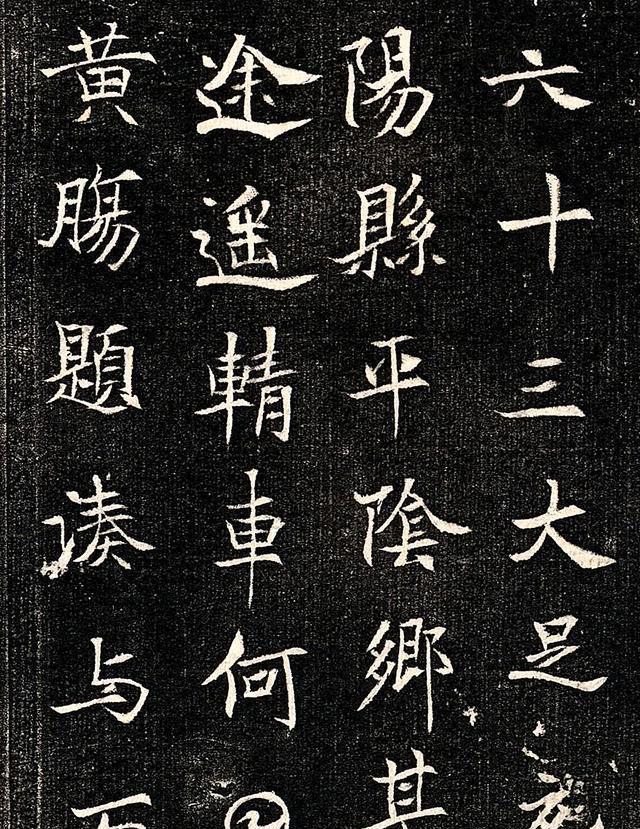 六十三大足
陽縣平陰鄉其
途遥輤車何
黄膓題湊与